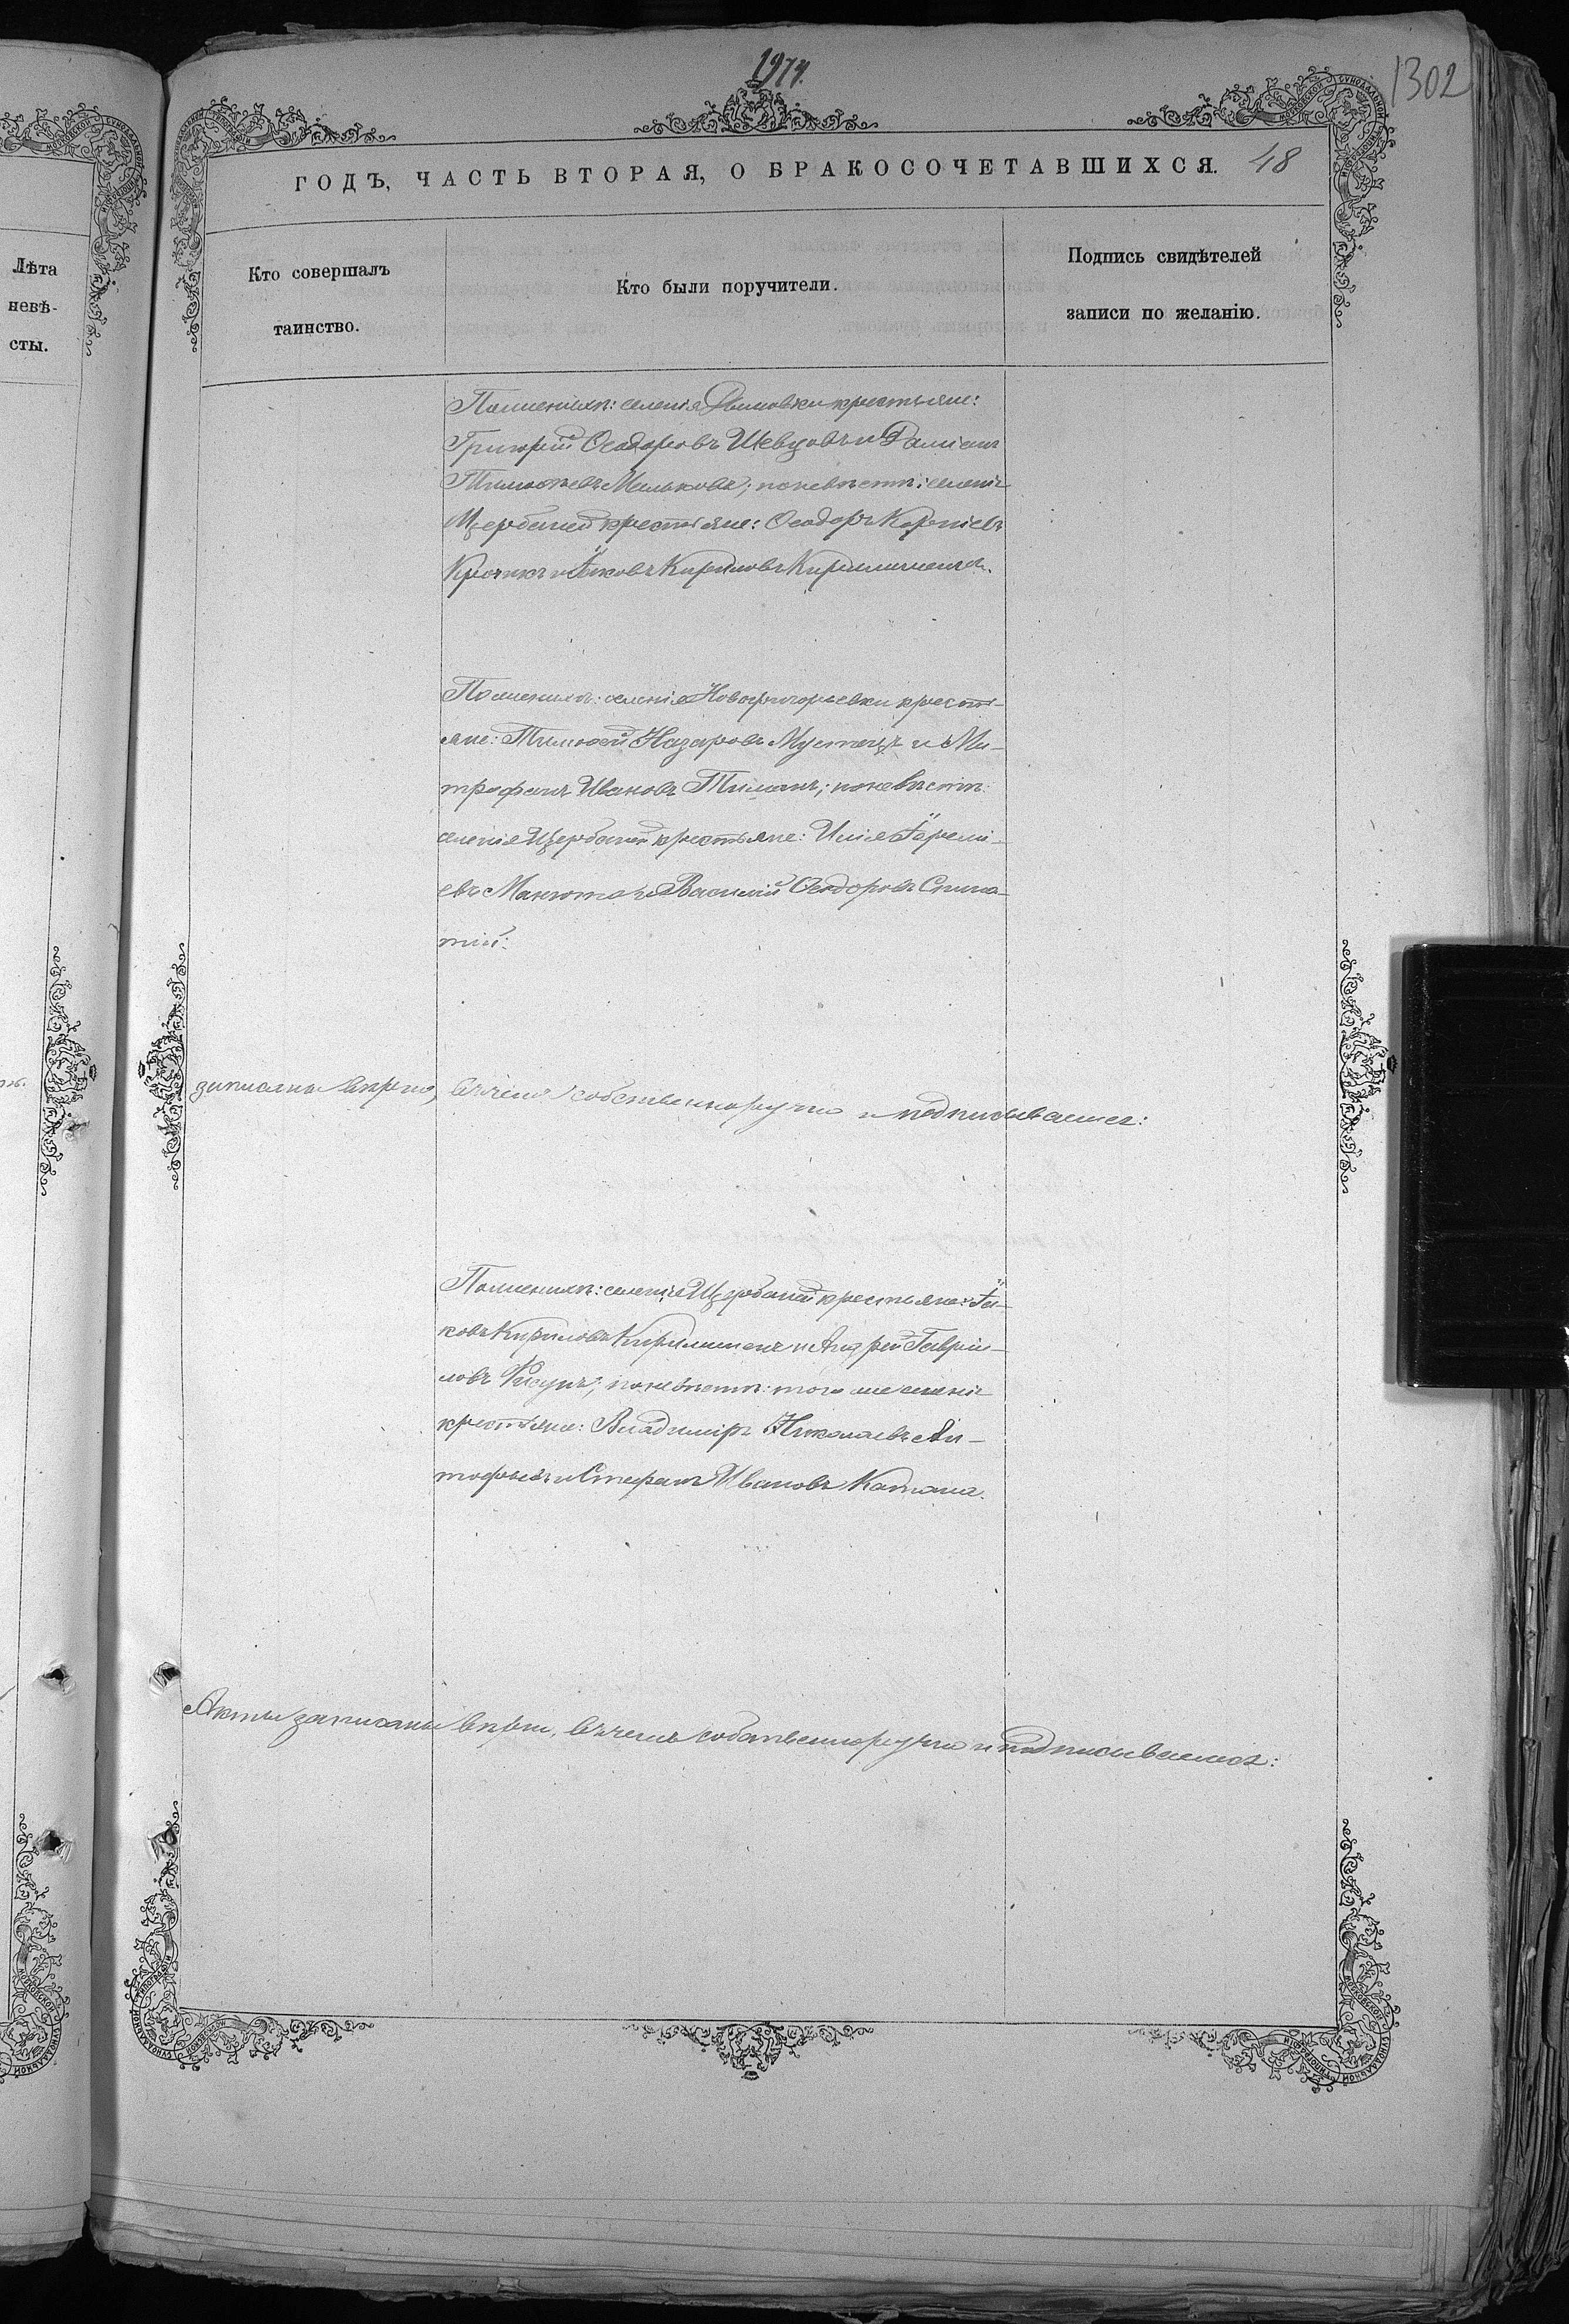 1302
48
ГОДЪ, ЧАСТЬ ВТОРАЯ, О БРАКОСОЧЕТАВШИХСЯ.
Лѣта
невѣ-
сты.
Кто совершалъ
таинство.
Кто были поручители.
Подпись свидѣтелей
записи по желанію.
По женихѣ: селенія крестьяне:
Григорій Ѳеодоровъ Шевцовъ и Даміанъ
Тимоѳеевъ Мельковъ; по невѣстѣ: селенія
Щербаней крестьяне: Ѳеодоръ Корніевъ
и Іаковъ Кириловъ
По женихѣ: селенія Новогригорьевки кресть-
яне: Тимоѳей Назаровъ Мустяца и Ми-
трофанъ Ивановъ Тиманъ; по невѣстѣ:
селенія Щербаней крестьяне: Илія Іеремі-
евъ и Василій Ѳеодоровъ Спина-
тій:
записаны вѣрно, въ чемъ собственноручно и подписываемся:
По женихѣ: селенія Щербаней крестьяне: Іа-
ковъ Кириловъ и Андрей Гаврии-
ловъ по невѣстѣ: того же селенія
крестьяне: Владиміръ Николаевъ
и Стефанъ Ивановъ Катана.
Акты записаны вѣрно, въ чемъ собственноручно и подписываемся: